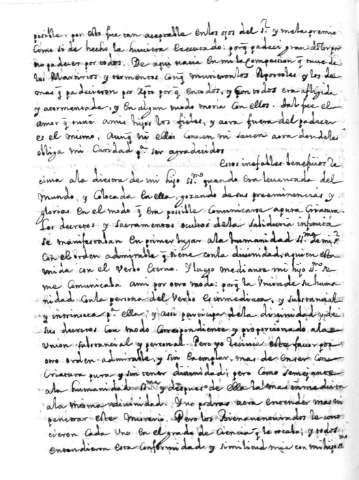 posible. por esto fue tan aceptable en los ojos del Sr. y me la premio
como si de hecho la huviera executado: porq padecer gran dolor por
no padecer por todos. De aqui nacia en mi la compasion q tuve de
los Martires y tormentos conq murieron los Apostoles y los de
mas q padecieron por Xpto porq en todos, y con todos era afligida
y atormentada, y en algun modo moria con ellos. tal fue el
amor q tuve a mis hijos los fieles, y aora fuera del padecer
es el mismo, Aunq ni ellos conocen ni saven aora donde les
obliga mi Caridad q ser agradecidos
Estos inefables beneficios re
civia a la diestra de mi hijo SSmo quando era levantada del
Mundo, y Colocada en ella, gozando de sus preeminencias y
glorias en el modo q era posible comunicarse a pura Criatura.
Los decretos y Sacramentos ocultos de la Sabiduria infinita
se manifestaban en primer lugar a la humanidad SSma de mi Sr.
con el orden admirable q tiene con la divinidad, a quien esta
unida con el Verbo Eterno. Y luego mediante mi hijo SSmo
me Comunicaba a mi por otro modo: porq la Union de su huma
nidad con la persona del Verbo es inmediata, y substancial
y intrinseca p.ª ella; y asi participa de la divinidad y de
sus decretos con modo correspondiente y proporcionado a la
union substancial y personal. Pero yo recivia este favor por
otro orden admirable, y sin exemplar, mas de en ser con
Criatura pura y sin tener divinidad; pero como semejante
a la humanidad SSma y despues de ella la mas inmediata
a la misma divinidad. No podras aora entender mas ni
penetrar este Misterio. Pero los Bienaventurados le cono
cieron cada uno en el grado de Ciencia q le tocaba; y todos
entendieron esta Conformidad y similitud mia con mi hijo SSmo